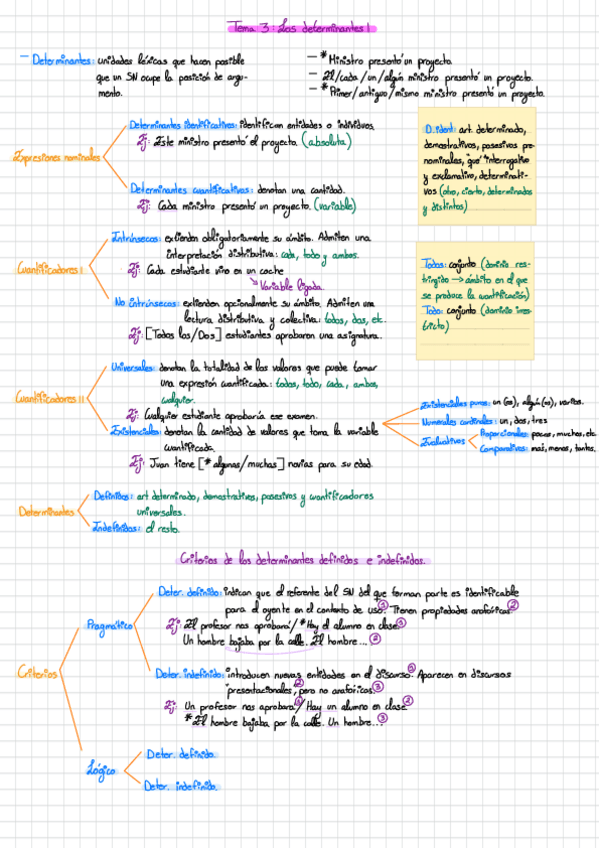 Tema 3: Los determinantes I
— Determinantes: unidades léxicas que hacen posible
que un SN ocupe la posición de argu-
mento.
— * Ministro presentó un proyecto.
— El/cada/un/algún ministro presentó un proyecto.
— * Primer/antiguo/mismo ministro presentó un proyecto.
Expresiones nominales
Determinantes identificativos: identifican entidades o individuos.
Ej: Este ministro presentó el proyecto. (absoluta)
Determinantes cuantificativos: denotan una cantidad.
Ej: Cada ministro presentó un proyecto. (variable)
D. ident: art. determinado,
demostrativos, posesivos pre-
nominales, "qué" interrogativo
y exclamativo, determinati-
vos (otro, cierto, determinados
y distintos)
Cuantificadores I
Intrínsecos: extienden obligatoriamente su ámbito. Admiten una
interpretación distributiva: cada, todo y ambos.
Ej: Cada estudiante vino en un coche
Variable ligada.
No intrínsecos: extienden opcionalmente su ámbito. Admiten una
lectura distributiva y colectiva: todos, dos, etc.
Ej: [Todos los/Dos] estudiantes aprobaron una asignatura.
Todos: conjunto (dominio res-
tringido → ámbito en el que
se produce la cuantificación)
Todo: conjunto (dominio irres-
tricto)
Cuantificadores II
Universales: denotan la totalidad de los valores que puede tomar
una expresión cuantificada: todos, todo, cada, ambos,
cualquier.
Ej: Cualquier estudiante aprobaría ese examen.
Existenciales: denotan la cantidad de valores que toma la variable
cuantificada.
Ej: Juan tiene [*algunas/muchas] novias para su edad.
Existenciales puros: un (os), algún (os), varios.
Numerales cardinales: un, dos, tres
Evaluativos
Proporcionales: pocos, muchos, etc.
Comparativos: más, menos, tantos.
Determinantes
Definidos: art determinado, demostrativos, posesivos y cuantificadores
universales.
Indefinidos: el resto.
Criterios de los determinantes definidos e indefinidos.
Criterios
Pragmático
Deter. definido: indican que el referente del SN del que forman parte es identificable
para el oyente en el contexto de uso. ① Tienen propiedades anafóricas ②
Ej: El profesor nos aprobará/ * Hay el alumno en clase ①
Un hombre bajaba por la calle. El hombre... ②
Deter. indefinido: introducen nuevas entidades en el discurso. ① Aparecen en discursos
presentacionales, ② pero no anafóricos ③
Ej: Un profesor nos aprobará ① / Hay un alumno en clase ②
* El hombre bajaba por la calle. Un hombre... ③
Lógico
Deter. definido.
Deter. indefinido.